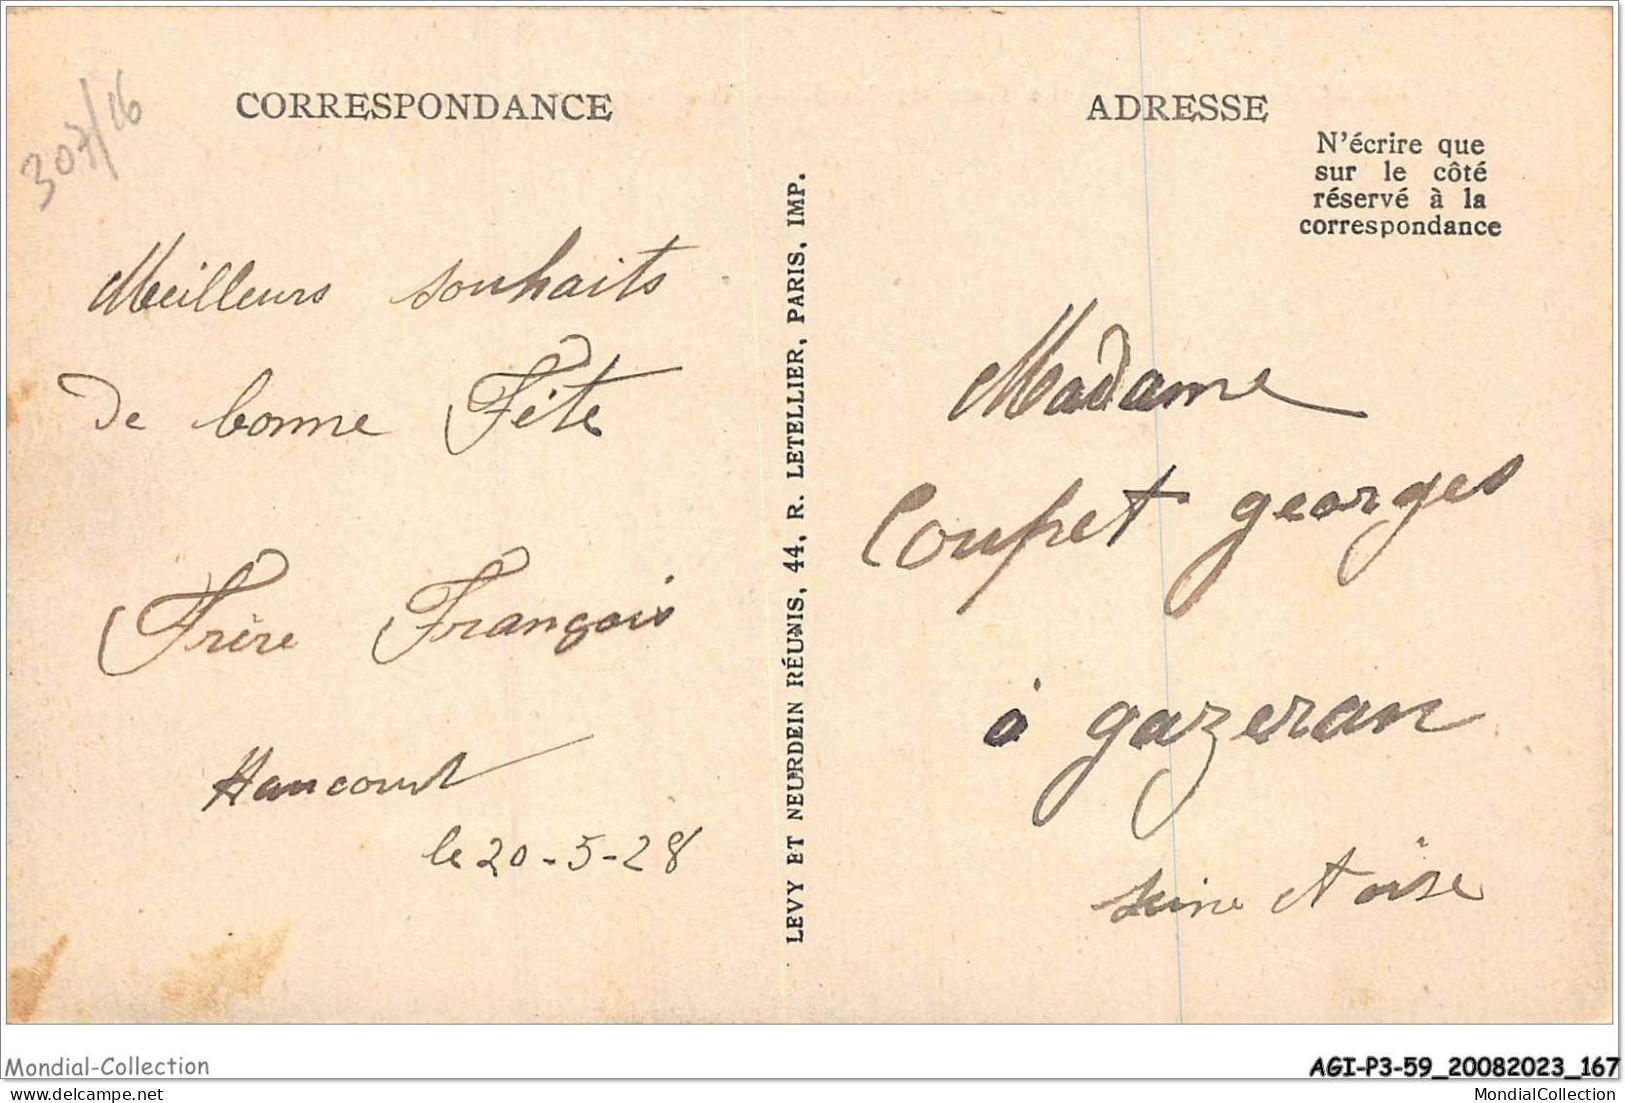 307/16
CORRESPONDANCE
Meilleurs souhaits
de bonne Fête
Frère François
Hancourt
le 20-5-28
LEVY ET NEURDEIN RÉUNIS, 44, R. LETELLIER, PARIS, IMP.
ADRESSE
N'écrire que
sur le côté
réservé à la
correspondance
Madame
Coupet georges
à gazeran
Seine et oise
Mondial-Collection
AGI-P3-59_20082023_167
MondialCollection